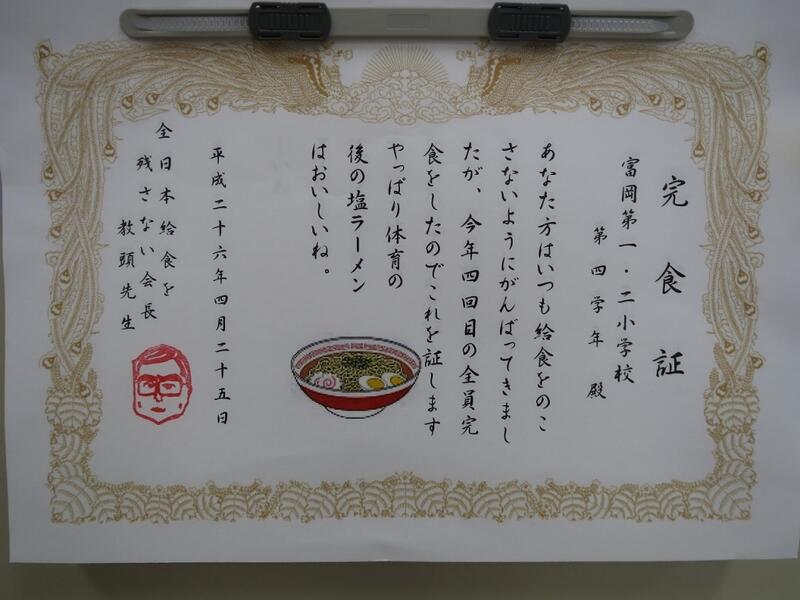 完食証
富岡第一・二小学校
第四学年殿
あなた方はいつも給食をのこ
さないようにがんばってきまし
たが、今年四回目の全員完
食をしたのでこれを証します
やっぱり体育の
後の塩ラーメン
はおいしいね。
平成二十六年四月二十五日
全日本給食を
残さない会長
教頭先生